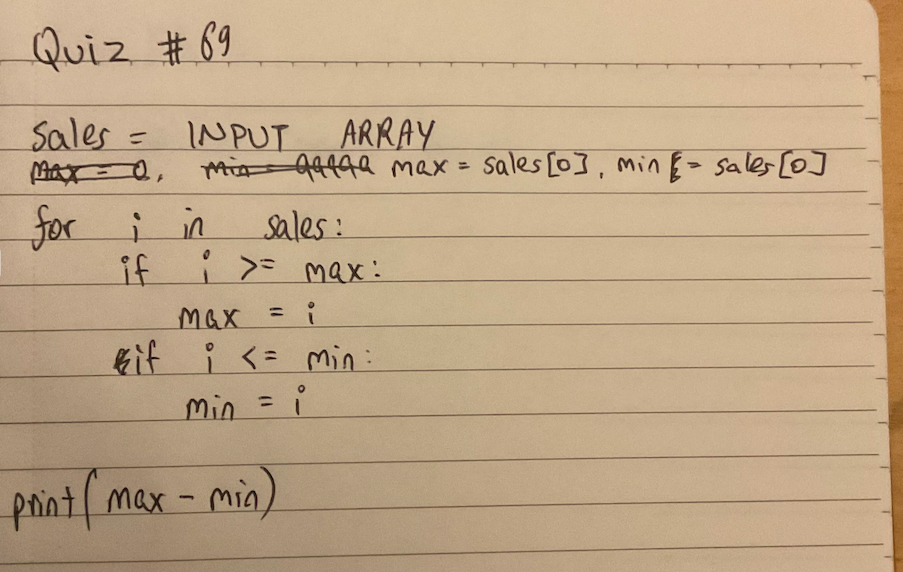 Quiz #69
sales = INPUT ARRAY
max = 0, min = 99999 max = sales[0], min = sales[0]
for i in sales:
if i >= max:
max = i
if i <= min:
min = i
print(max - min)